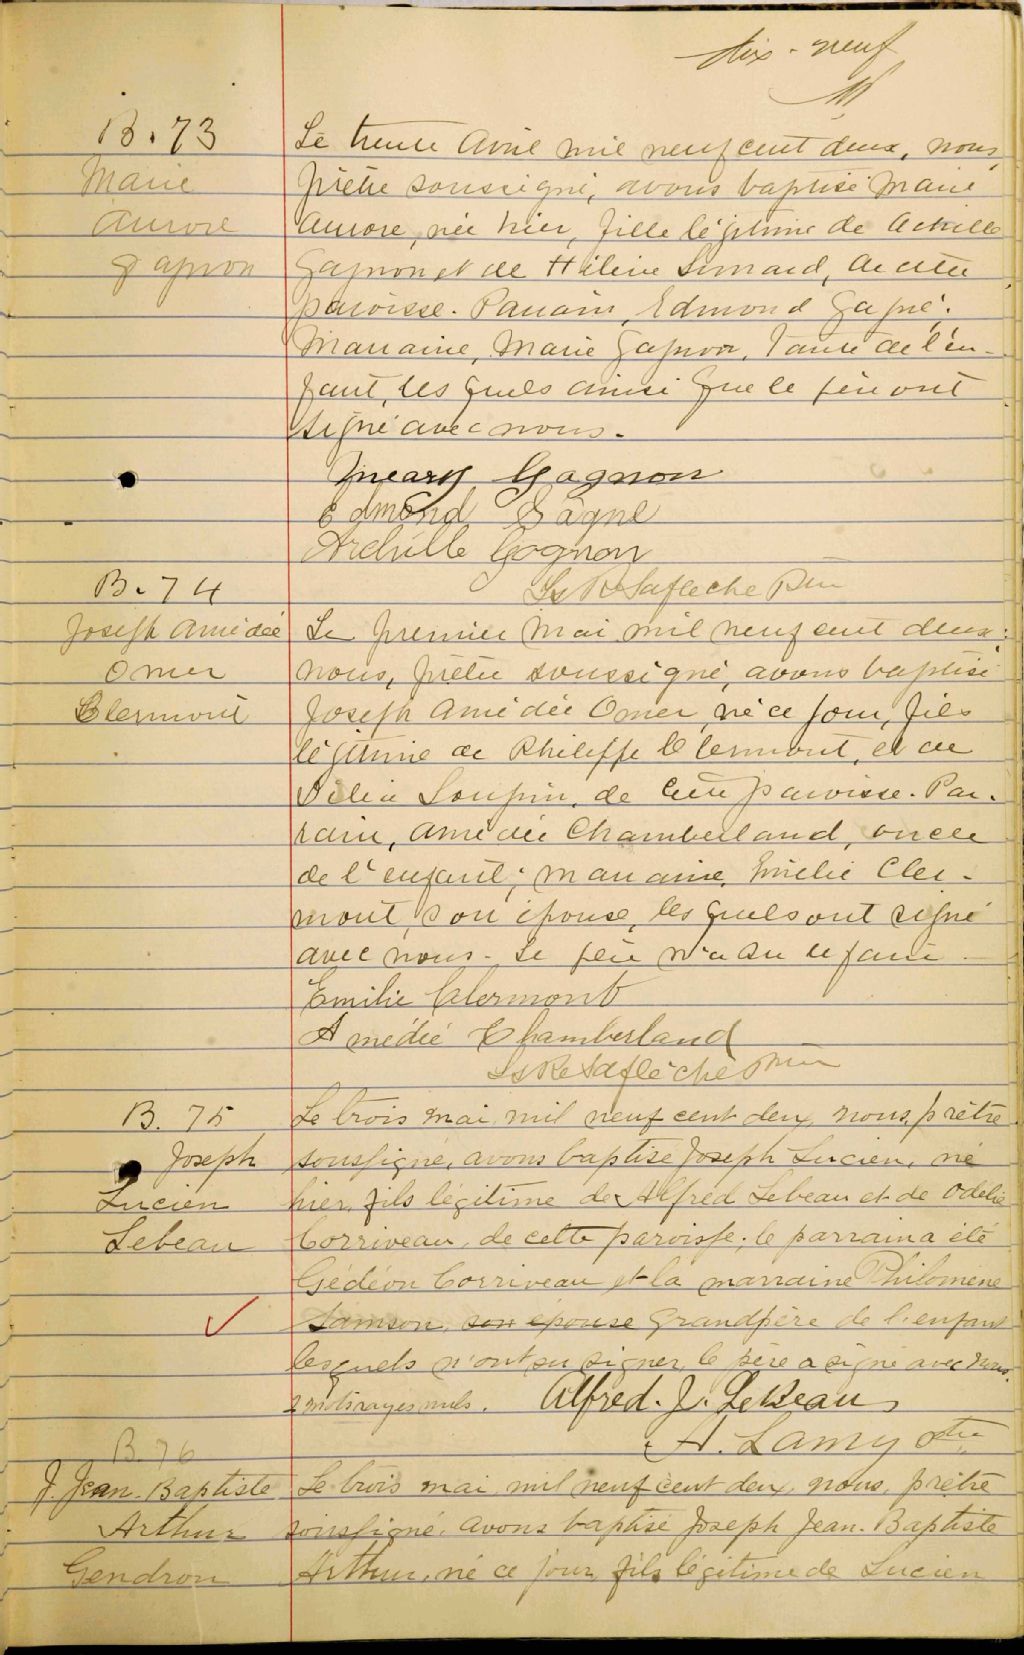 dix-neuf
B. 73
Marie
Aurore
Gagnon
Le trente Avril mil neuf cent deux, nous,
prêtre soussigné, avons baptisé Marie
Aurore, née hier, fille légitime de Achille
Gagnon et de Hélène Simard, de cette
paroisse. Parrain, Edmond Gagné.
Marraine, Marie Gagnon, Tante de l'en-
fant, lesquels ainsi que le père ont
signé avec nous.
Meary Gagnon
Edmond Gagné
Archille Gagnon
Ls R Lafleche Ptre
B. 74
Joseph Amédée
Omer
Clermont
Le premier Mai mil neuf cent deux:
nous, prêtre soussigné, avons baptisé
Joseph Amédée Omer, né ce jour, fils
légitime de Philippe Clermont, et de
Délia Loupin, de cette paroisse. Par-
rain, Amédée Chamberland, oncle
de l'enfant; marraine, Emélie Cler-
mont, son épouse, lesquels ont signé
avec nous. Le père n'a su le faire.
Emilie Clermont
Amédée Chamberland
Ls Re Laflèche Ptre
B. 75
Joseph
Lucien
Lebeau
Le trois mai mil neuf cent deux, nous, prêtre
soussigné, avons baptisé Joseph Lucien, né
hier, fils légitime de Alfred Lebeau et de Odélie
Corriveau, de cette paroisse; le parrain a été
Gédéon Corriveau et la marraine Philomène
Samson, son épouse grandpère de l'enfant
lesquels n'ont su signer, le père a signé avec nous.
2 mots rayés nuls. Alfred. J. LeBeau
A. Lamy Ptre
B. 76
J. Jean-Baptiste
Arthur
Gendron
Le trois mai mil neuf cent deux, nous, prêtre
soussigné, avons baptisé Joseph Jean-Baptiste
Arthur, né ce jour, fils légitime de Lucien